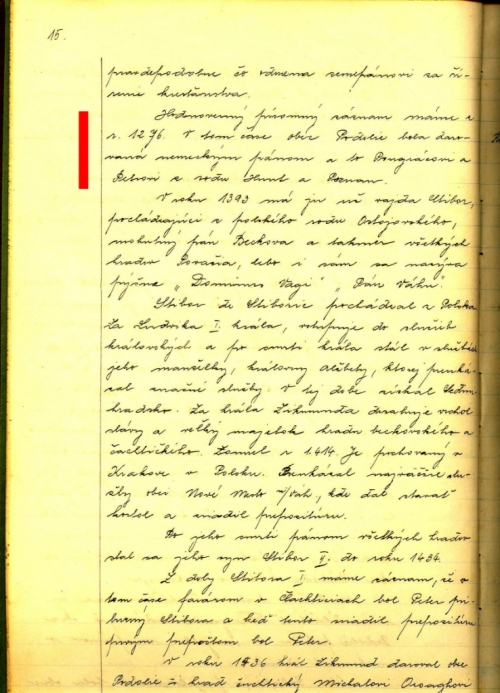 15.
pravdepodobne čo odmena zemepánovi za ší-
renie kresťanstva.
Hodnoverný písomný záznam máme z
r. 1276. V tom čase obec Podolie bola daro-
vaná nemeckým pánom a to Pongrácovi a
Petrovi z rodu Hunt a Poznan.
V roku 1393 má ju už vajda Stibor,
pochádzajúci z poľského rodu Ostojovského,
mohutný pán Beckova a takmer všetkých
hradov Považia, lebo i sám sa nazýva
pyšne „Dominus Vagi" „Pán Váhu.
Stibor de Stiboric pochádzal z Poľska
Za Ludvika I. kráľa, vstupuje do služieb
kráľovských a po smrti kráľa stál v službách
jeho manželky, kráľovny Alžbety, ktorej preuká-
zal značné služby. V tej dobe získal Sedmo-
hradsko. Za kráľa Zikmunda dosahuje vrchol
slávy a veľký majetok hradu beckovského a
čachtického. Zomrel r. 1414. Je pochovaný v
Krakove v Poľsku. Preukázal najväčšie slu-
žby obci Nové Mesto n/Váh., kde dal stavať
kostol a zriadil prepozitúru.
Po jeho smrti pánom všetkých hradov
stal sa jeho syn Stibor II. do roku 1434.
Z doby Stibora I. máme záznam, že v
tom čase farárom v Čachticiach bol Peter prí-
buzný Stibora a keď tento zriadil prepozitúru
prvým prepoštom bol Peter.
V roku 1436 kráľ Zikmund daroval obec
Podolie a hrad čachtický Michalovi Orsaghovi